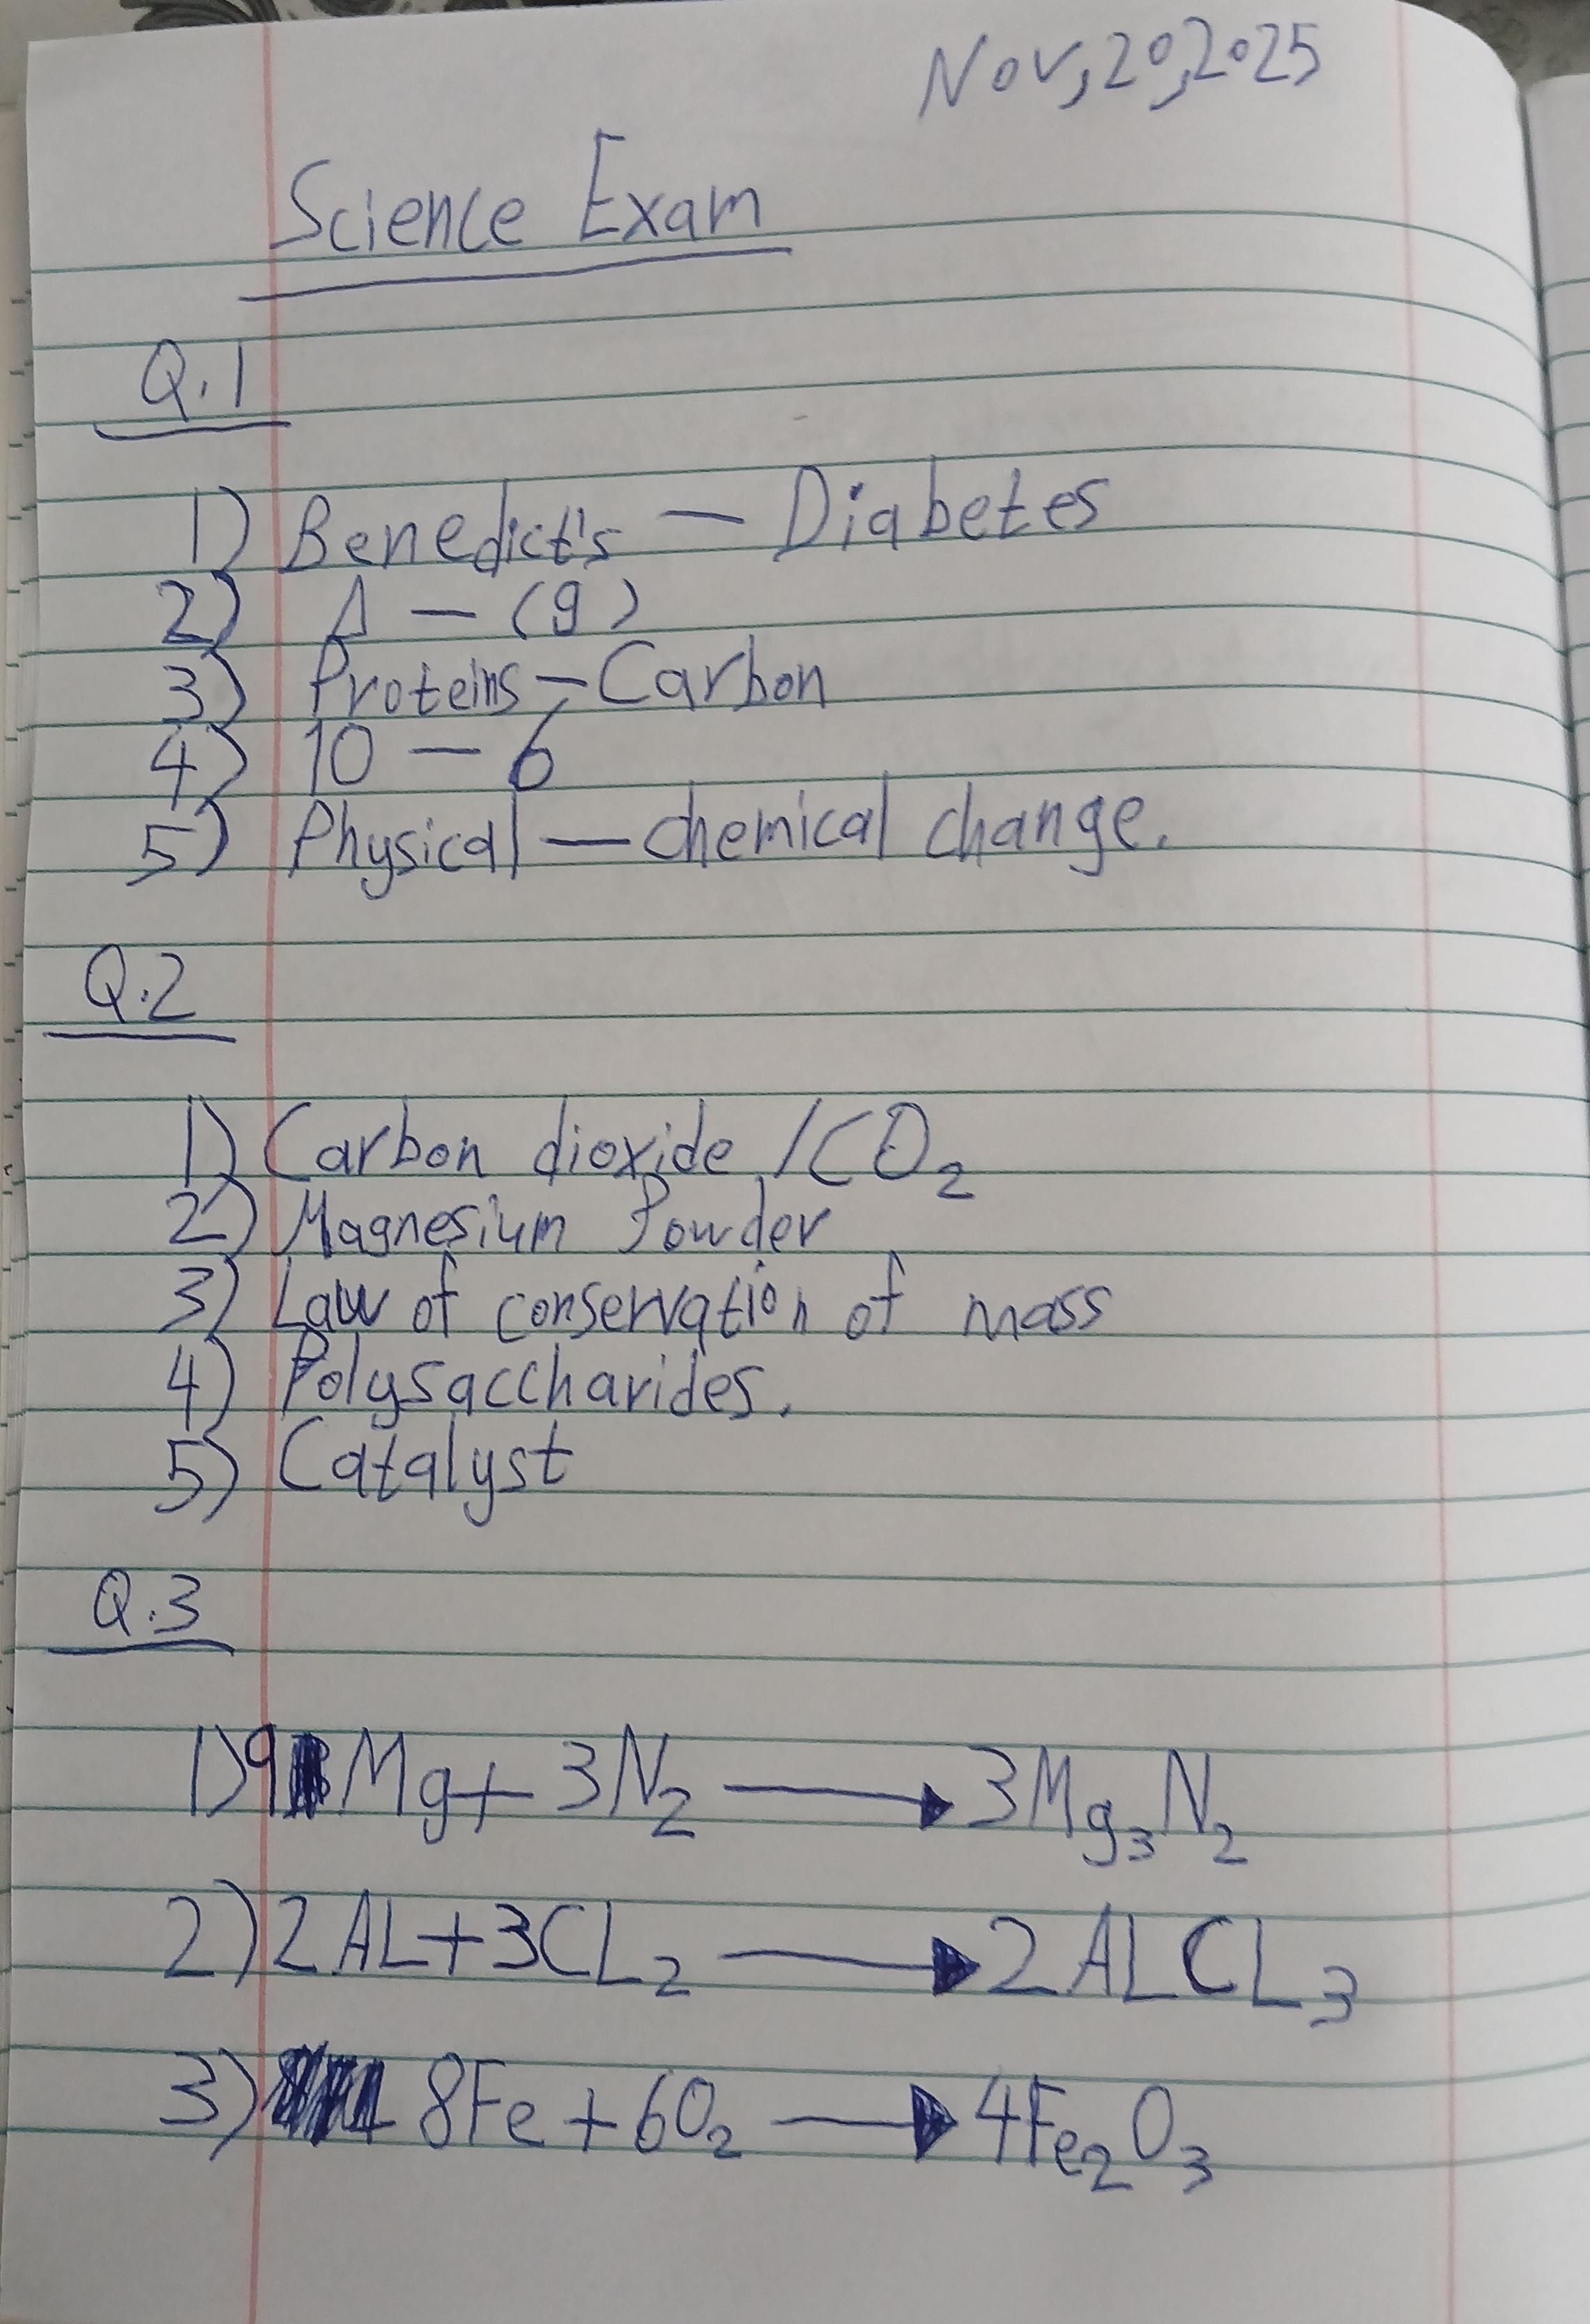 Nov, 20, 2025
Science Exam
Q.1
1) Benedict's — Diabetes
2) Δ — (g)
3) Proteins — Carbon
4) 10 — 6
5) Physical — chemical change.
Q.2
1) Carbon dioxide / CO₂
2) Magnesium Powder
3) Law of conservation of mass
4) Polysaccharides.
5) Catalyst
Q.3
1) 9Mg + 3N₂ → 3Mg₃N₂
2) 2AL + 3CL₂ → 2ALCL₃
3) 8Fe + 6O₂ → 4Fe₂O₃